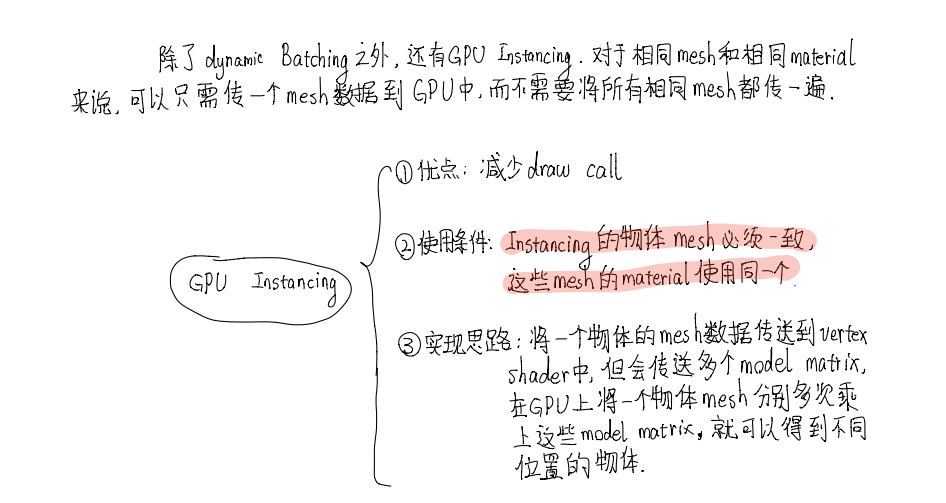 除了dynamic Batching之外,还有GPU Instancing.对于相同mesh和相同material
来说,可以只需传一个mesh数据到GPU中,而不需要将所有相同mesh都传一遍.
①优点:减少draw call
②使用条件:Instancing的物体mesh必须一致,
这些mesh的material使用同一个.
GPU Instancing
③实现思路:将一个物体的mesh数据传送到vertex
shader中,但会传送多个model matrix,
在GPU上将一个物体mesh分别多次乘
上这些model matrix,就可以得到不同
位置的物体.